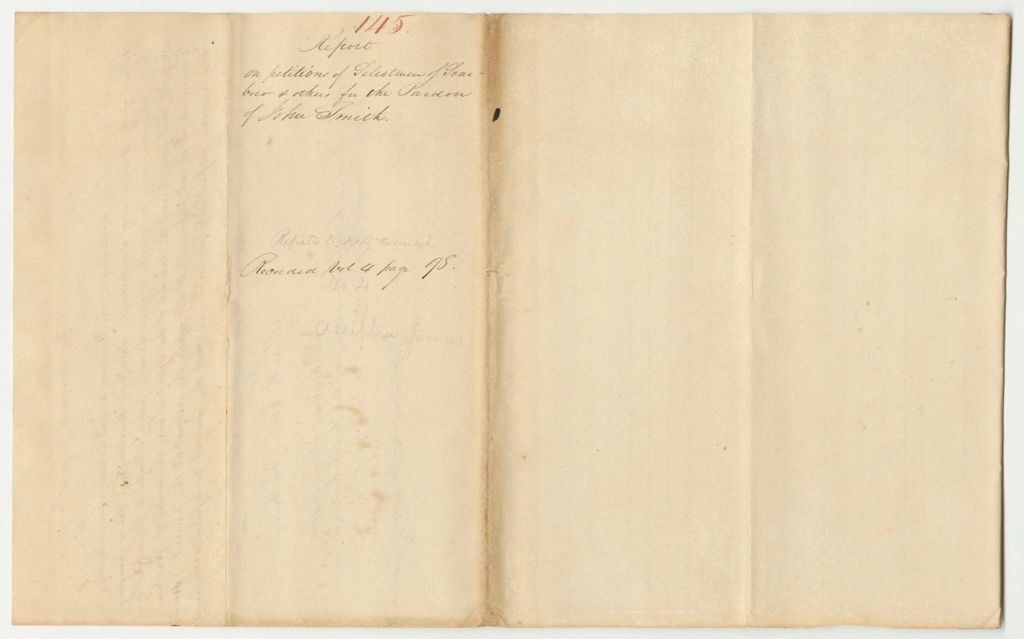 145.
Report
on petitions of Selectmen of Scar-
boro & others for the Pardon
of John Smith.
Referred to next Council
Recorded Vol 4 page 95.
No 4
Accepted June 30